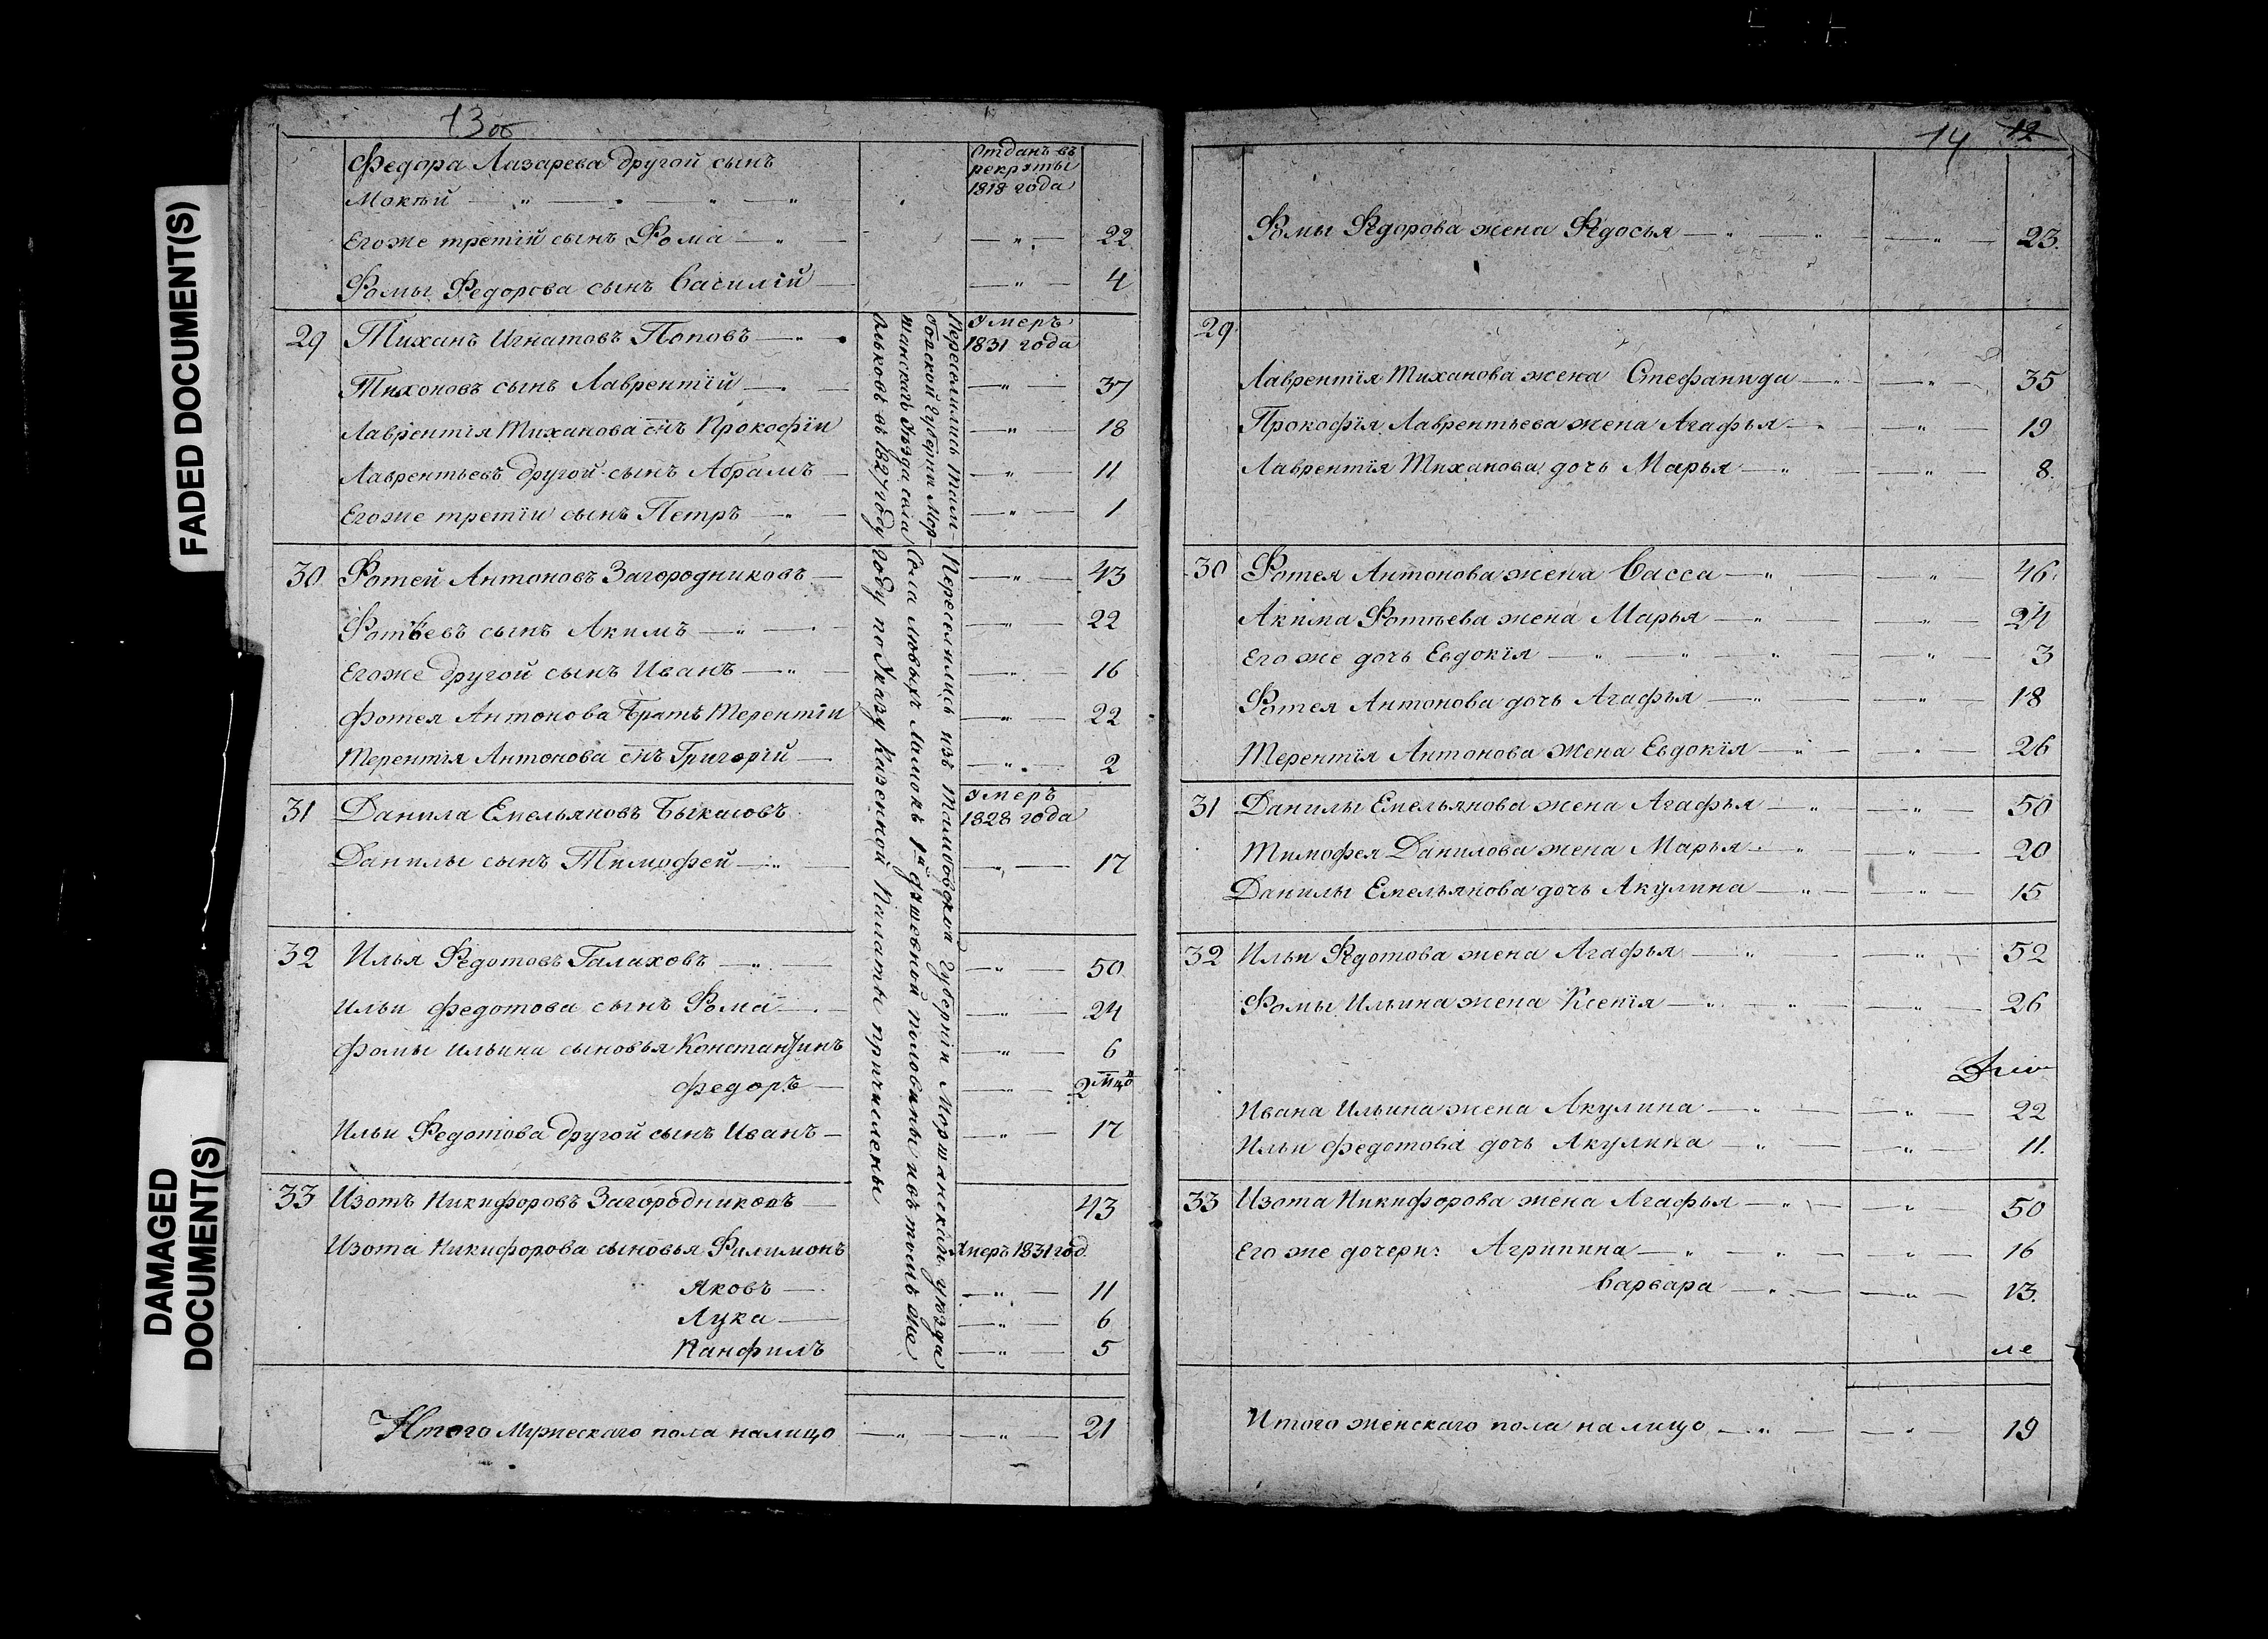 FADED DOCUMENT(S)
DAMAGED
DOCUMENT(S)
13 об
Федора Лазарева другой сынъ
Мокѣй
Отданъ въ
рекруты
1818 года
Егоже третій сынъ Фома 22
Фомы Федорова сынъ Василій 4
29 Тиханъ Игнатовъ Поповъ
Умеръ
1831 года
Тихоновъ сынъ Лаврентій 37
Лаврентія Тиханова снъ Прокофіи 18
Лаврентьевъ другой сынъ Абрамъ 11
Егоже третіи сынъ Петръ 1
Переселились Там-
бовской Губерніи Мор-
шанскаго Уѣзда села
въ 1827 году
30 Фотей Антоновъ Загородниковъ 43
Фотѣевъ сынъ Акимъ 22
Егоже другой сынъ Иванъ 16
Фотея Антонова братъ Терентіи 22
Терентія Антонова снъ Григорій 2
31 Данила Емельяновъ
Умеръ
1828 года
Данилы сынъ Тимофей 17
32 Илья Федотовъ Галаховъ 50
Ильи Федотова сынъ Фома 24
Фомы Ильина сыновья Константинъ 6
Федоръ 2 мцо
Ильи Федотова другой сынъ Иванъ 17
33 Изотъ Никифоровъ Загородниковъ 43
Изота Никифорова сыновья Филимонъ Умеръ 1831 год
Яковъ 11
Лука 6
Панфилъ 5
Переселились изъ Тамбовской Губерніи Моршанскаго уѣзда
Села Любыхъ Ламокъ 1й половины изъ того же
году по Указу Казенной Палаты причислены
Итого Мужескаго пола налицо 21
14 12
Фомы Федорова жена Федосья 23
29
Лаврентія Тиханова жена Стефанида 35
Прокофія Лаврентьева жена Агафья 19
Лаврентія Тиханова дочь Марья 8
30 Фотея Антонова жена Васса 46
Акима Фотѣева жена Марья 24
Его же дочь Евдокія 3
Фотея Антонова дочь Агафья 18
Терентія Антонова жена Евдокія 26
31 Данилы Емельянова жена Агафья 50
Тимофея Данилова жена Марья 20
Данилы Емельянова дочь Акулина 15
32 Ильи Федотова жена Агафья 52
Фомы Ильина жена Ксенія 26
Ивана Ильина жена Акулина 22
Ильи Федотова дочь Акулина 11
33 Изота Никифорова жена Агафья 50
Его же дочери: Агрипина 16
Варвара 13
ле
Итого женскаго пола на лицо 19